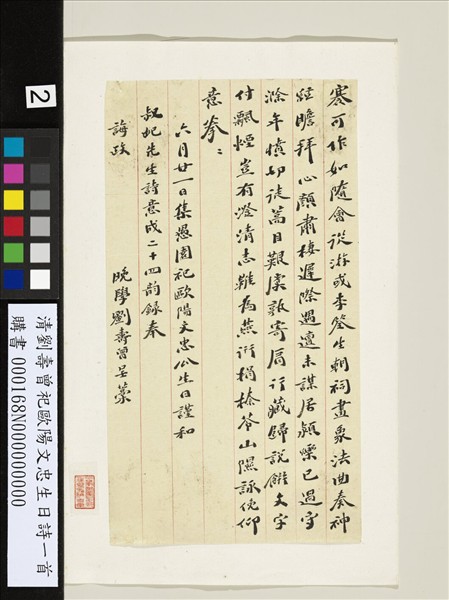 可作如隨會從游或李登生祠畫象法曲奏神
瞻拜心顏肅棲遲際遇邅未謀居潁樂已過守
滁年憤切徒蒿目艱虞孰寄肩行藏歸說文字
付飄煙豈有澄清志難為燕衎榛苓山隰詠俛仰
意拳〻
六月廿一日集愚園祀歐陽文忠公生日謹和
叔先生詩意成二十四韵錄奉
誨政
晚學劉壽曾呈藁
2
清劉壽曾祀歐陽文忠生日詩一首
購書 000168N0000000000